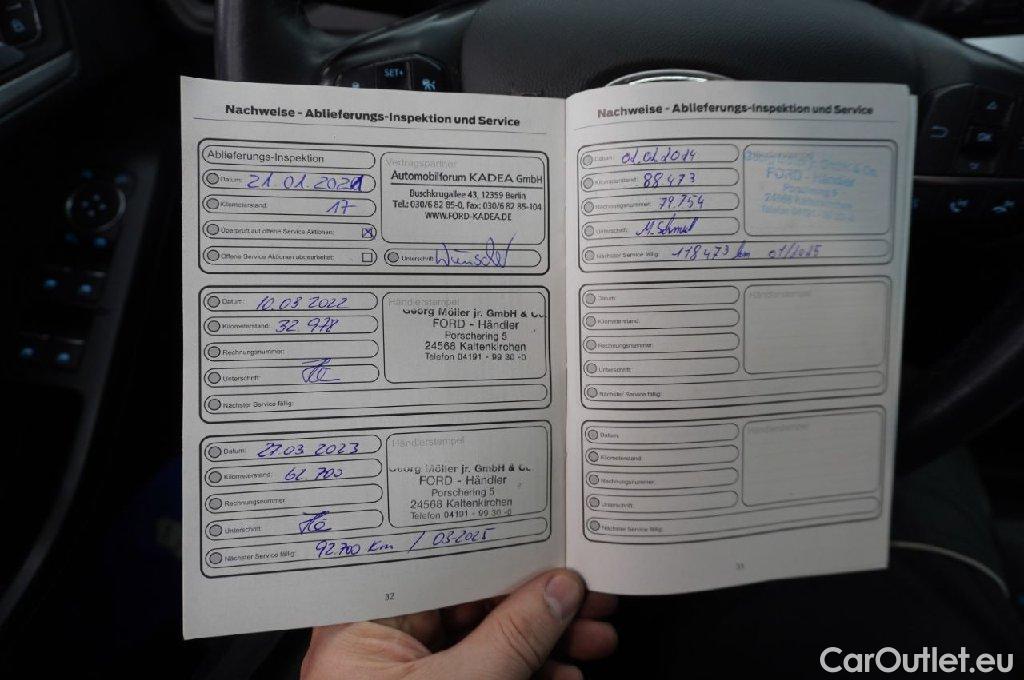 SET+
OK
Nachweise - Ablieferungs-Inspektion und Service
Ablieferungs-Inspektion
Datum: 21.01.2021
Kilometerstand: 17
Überprüft auf offene Service Aktionen:
Offene Service Aktionen abgearbeitet:
Vertragspartner
Automobilforum KADEA GmbH
Buschkrugallee 43, 12359 Berlin
Tel.: 030/6 82 85-0, Fax: 030/6 82 85-104
WWW.FORD-KADEA.DE
Unterschrift:
Datum: 10.03.2022
Kilometerstand: 32.978
Rechnungsnummer:
Unterschrift:
Nächster Service fällig:
Händlerstempel
Georg Möller jr. GmbH & Co.
FORD - Händler
Porschering 5
24568 Kaltenkirchen
Telefon 04191 - 99 30 -0
Datum: 27.03.2023
Kilometerstand: 62.700
Rechnungsnummer
Unterschrift:
Nächster Service fällig: 92.700 Km / 03.2025
Händlerstempel
Georg Möller jr. GmbH & Co.
FORD - Händler
Porschering 5
24568 Kaltenkirchen
Telefon 04191 - 99 30 -0
32
Nachweise - Ablieferungs-Inspektion und Service
Datum:
Kilometerstand: 88.473
Rechnungsnummer: 79.754
Unterschrift:
Nächster Service fällig: 118.473 km 01/2025
FORD - Händler
Porschering 5
24568 Kaltenkirchen
Datum:
Kilometerstand:
Rechnungsnummer:
Unterschrift:
Nächster Service fällig:
Händlerstempel
Datum:
Kilometerstand:
Rechnungsnummer:
Unterschrift:
Nächster Service fällig:
Händlerstempel
CarOutlet.eu